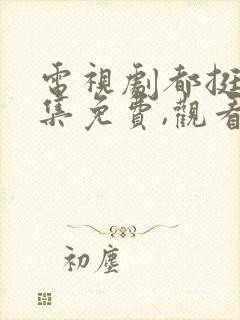 電視劇都挺
集免費,觀看
初塵